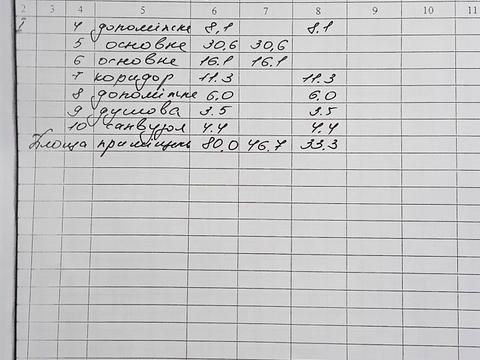 2 3 4 5 6 7 8 9 10 11
I 4 допоміжне 8,1 8,1
5 основне 30,6 30,6
6 основне 16.1 16.1
7 коридор 11.3 11.3
8 допоміжне 6.0 6,0
9 душова 3.5 3,5
10 санвузол 4.4 4.4
Площа приміщень 80.0 46.7 33.3